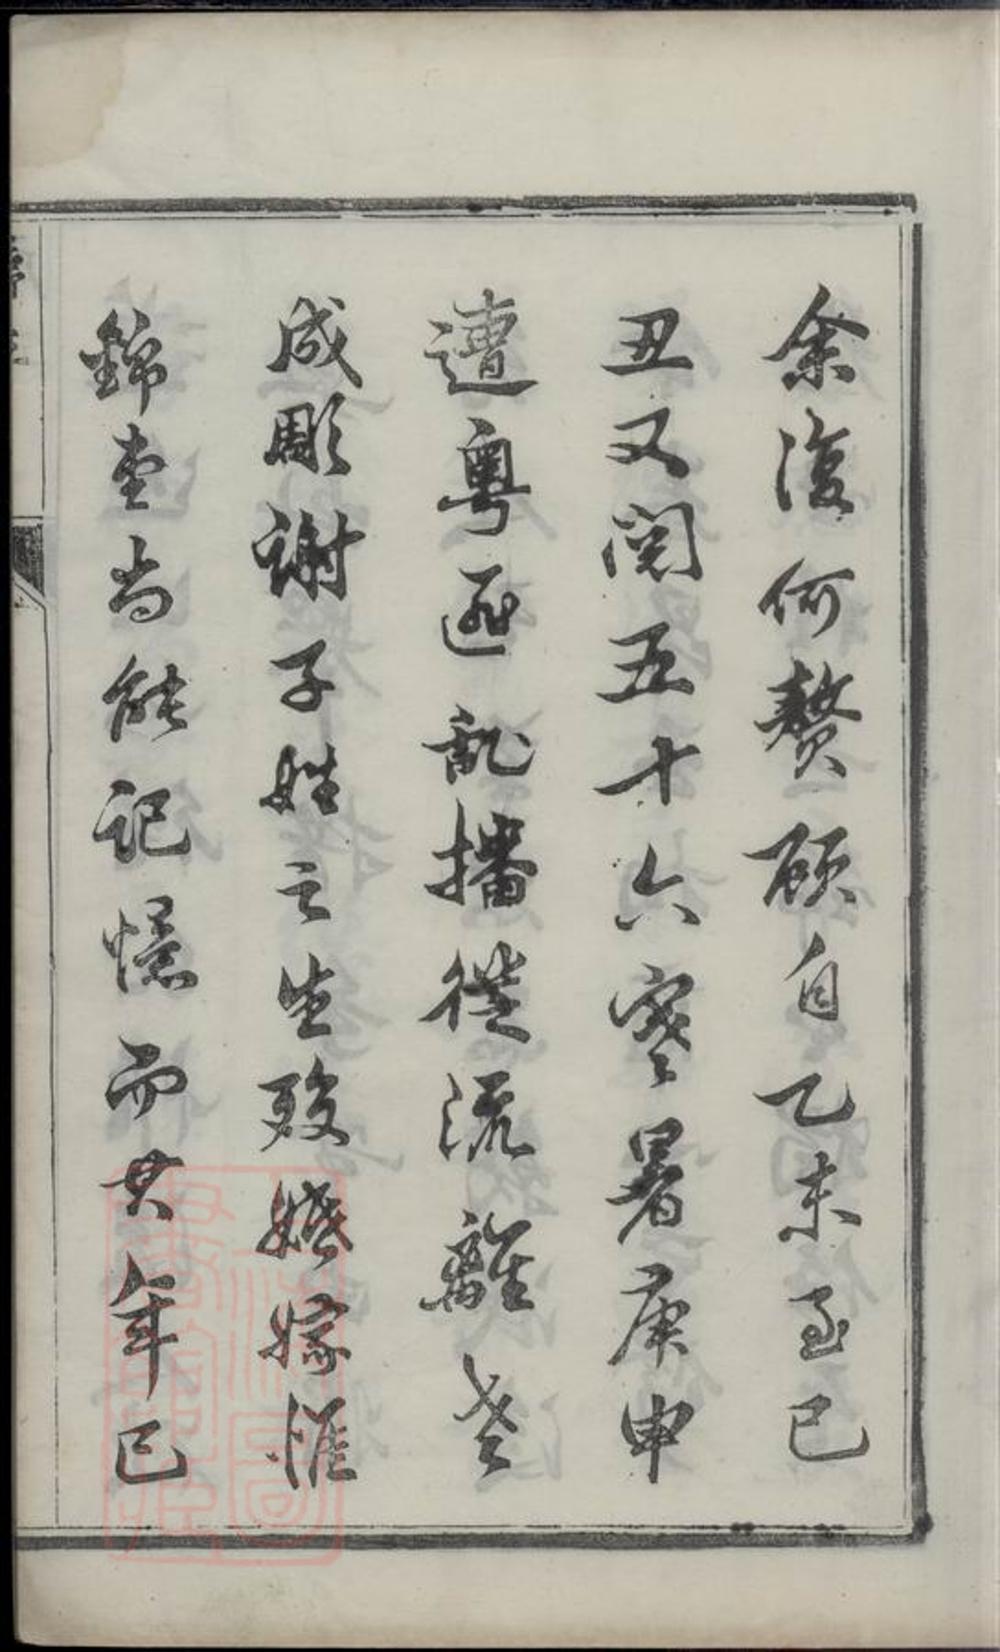 余復何贅顧自乙未至己
丑又閱五十六寒暑庚申
遭粵匪亂播徙流離老
成彫謝子姓之生歿婚嫁惟
錦堂尚能記憶而其年已